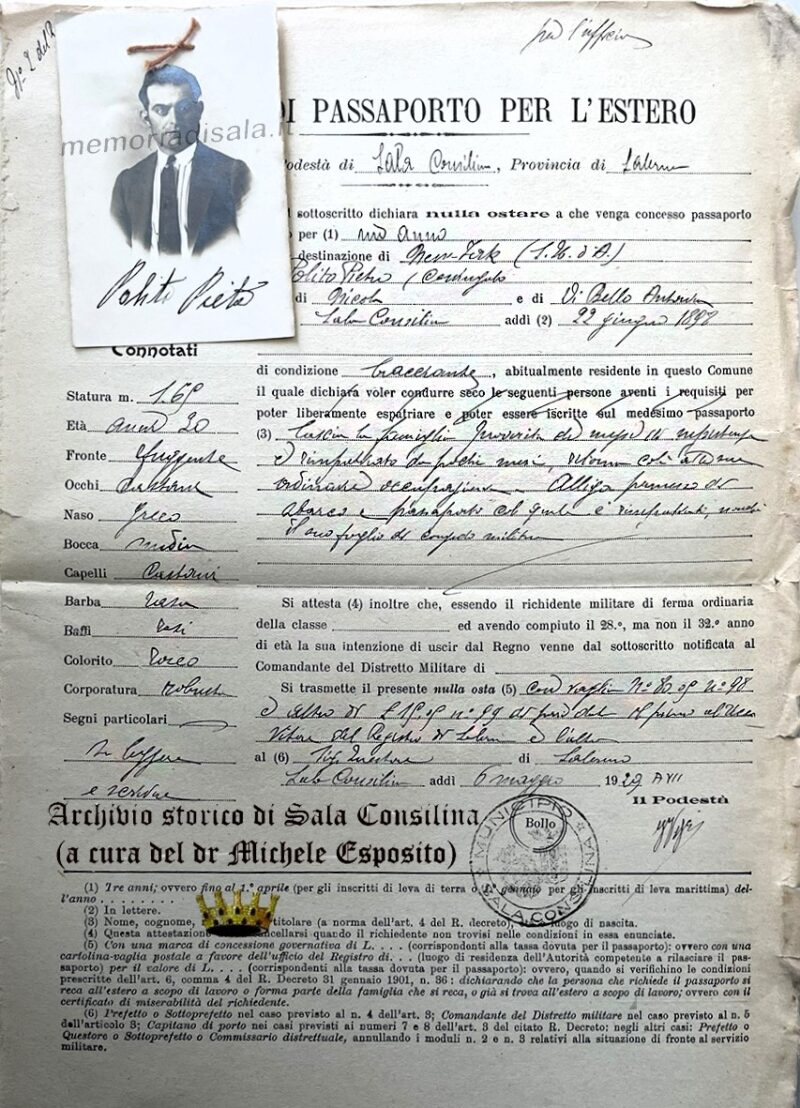 per l'ufficio
N° 2 del
memoriadisala.it
DI PASSAPORTO PER L'ESTERO
Podestà di Sala Consilina, Provincia di Salerno
sottoscritto dichiara nulla ostare a che venga concesso passaporto
per (1) un anno
destinazione di New-York (S.U. d'A.)
Polito Pietro, coniugato
di Nicola e di Di Bello Antonia
Sala Consilina addì (2) 22 giugno 1898
Polito Pietro
Connotati
di condizione bracciante, abitualmente residente in questo Comune
il quale dichiara voler condurre seco le seguenti persone aventi i requisiti per
poter liberamente espatriare e poter essere iscritte sul medesimo passaporto
(3) Lascia la famiglia provvista di mezzi di
e rimpatriato da pochi mesi, ritorna alla sua
ordinaria occupazione. Allega permesso di
sbarco e passaporto col quale è rimpatriato, nonché
il suo foglio di congedo militare
Statura m. 1.65
Età anni 30
Fronte
Occhi castani
Naso greco
Bocca media
Capelli Castani
Barba rasa
Baffi rasi
Colorito roseo
Corporatura robusta
Segni particolari
Sa leggere
e scrivere
Si attesta (4) inoltre che, essendo il richidente militare di ferma ordinaria
della classe ed avendo compiuto il 28.º, ma non il 32.º anno
di età la sua intenzione di uscir dal Regno venne dal sottoscritto notificata al
Comandante del Distretto Militare di
Si trasmette il presente nulla osta (5) con vaglia N° 98
e altro di n° 99 di pari del
del Registro di
al (6) Sig. Questore di Salerno
Sala Consilina addì 6 maggio 1929 VII
Il Podestà
MUNICIPIO
SALA CONSILINA
Bollo
Archivio storico di Sala Consilina
(a cura del dr Michele Esposito)
(1) Tre anni; ovvero fino al 1.º aprile (per gli inscritti di leva di terra o 1.º gennaio per gli inscritti di leva marittima) del-
l'anno . . . . . . . .
(2) In lettere.
(3) Nome, cognome, titolare (a norma dell'art. 4 del R. decreto), luogo di nascita.
(4) Questa attestazione cancellarsi quando il richiedente non trovisi nelle condizioni in essa enunciate.
(5) Con una marca di concessione governativa di L. . . . (corrispondenti alla tassa dovuta per il passaporto): ovvero con una
cartolina-vaglia postale a favore dell'ufficio del Registro di. . . (luogo di residenza dell'Autorità competente a rilasciare il pas-
saporto) per il valore di L. . . . (corrispondenti alla tassa dovuta per il passaporto): ovvero, quando si verifichino le condizioni
prescritte dell'art. 6, comma 4 del R. Decreto 31 gennaio 1901, n. 36: dichiarando che la persona che richiede il passaporto si
reca all'estero a scopo di lavoro o forma parte della famiglia che si reca, o già si trova all'estero a scopo di lavoro; ovvero con il
certificato di miserabilità del richiedente.
(6) Prefetto o Sottoprefetto nel caso previsto al n. 4 dell'art. 3; Comandante del Distretto militare nel caso previsto al n. 5
dell'articolo 3; Capitano di porto nei casi previsti ai numeri 7 e 8 dell'art. 3 del citato R. Decreto: negli altri casi: Prefetto o
Questore o Sottoprefetto o Commissario distrettuale, annullando i moduli n. 2 e n. 3 relativi alla situazione di fronte al servizio
militare.